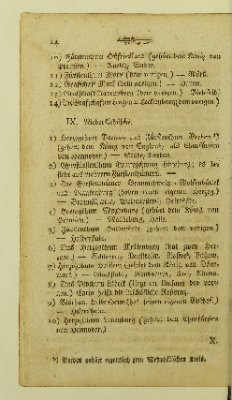 14
10) Fürstenthum Ostfriesland (gehört dem König von
Preussen.) — Aurich, Emden.
11) Fürstenthum Mörs (dem vorigen.) — Mörs.
12) Grafschaft Mark (dem vorigen.) — Hamm.
13) Grafschaft Ravensberg (dem vorigen.) — Bielefeld.
14) Die Grafschaften Lingen u. Tecklenburg (dem vorigen.)
IX. NiederSachsen.
1) Herzogthum Bremen und Fürstenthum Verden*)
(gehört dem König von England, als Churfürsten
von Hannover.) — Stade, Verden.
2) Churfürstenthum Braunschweig Lüneburg; es be
steht aus mehrern Fürstenthümern.
3) Die Fürstenthümer Braunschweig Wolfenbüttel
und Blankenburg
— Braunschweig, Wolfenbüttel, Helmstedt.
4) Herzogthum Magdeburg (gehört dem König von
Preussen.) — Magdeburg, Halle.
5) Fürstenthum Halberstadt (gehört dem vorigen.)
— Halberstadt.
6) Das Herzogthum Mecklenburg (hat zween Her-
zoge.) — Schwerin, Neustrelitz, Rostock, Güstrow.
7) Herzogthum Holstein (gehört dem König von Däne-
mark.) — Glückstadt, Rendsburg, Kiel, Altona.
8) Das Bisthum Lübeck
Eutin heißt die bischöfliche Residenz.
9) Bisthum Hildesheim (hat seinen eigenen Bischof.)
— Hildesheim.
10) Herzogthum Lauenburg (gehört dem Churfürsten
von Hannover.)
X.
*) Verden gehört eigentlich zum Westphälischen Kreis.